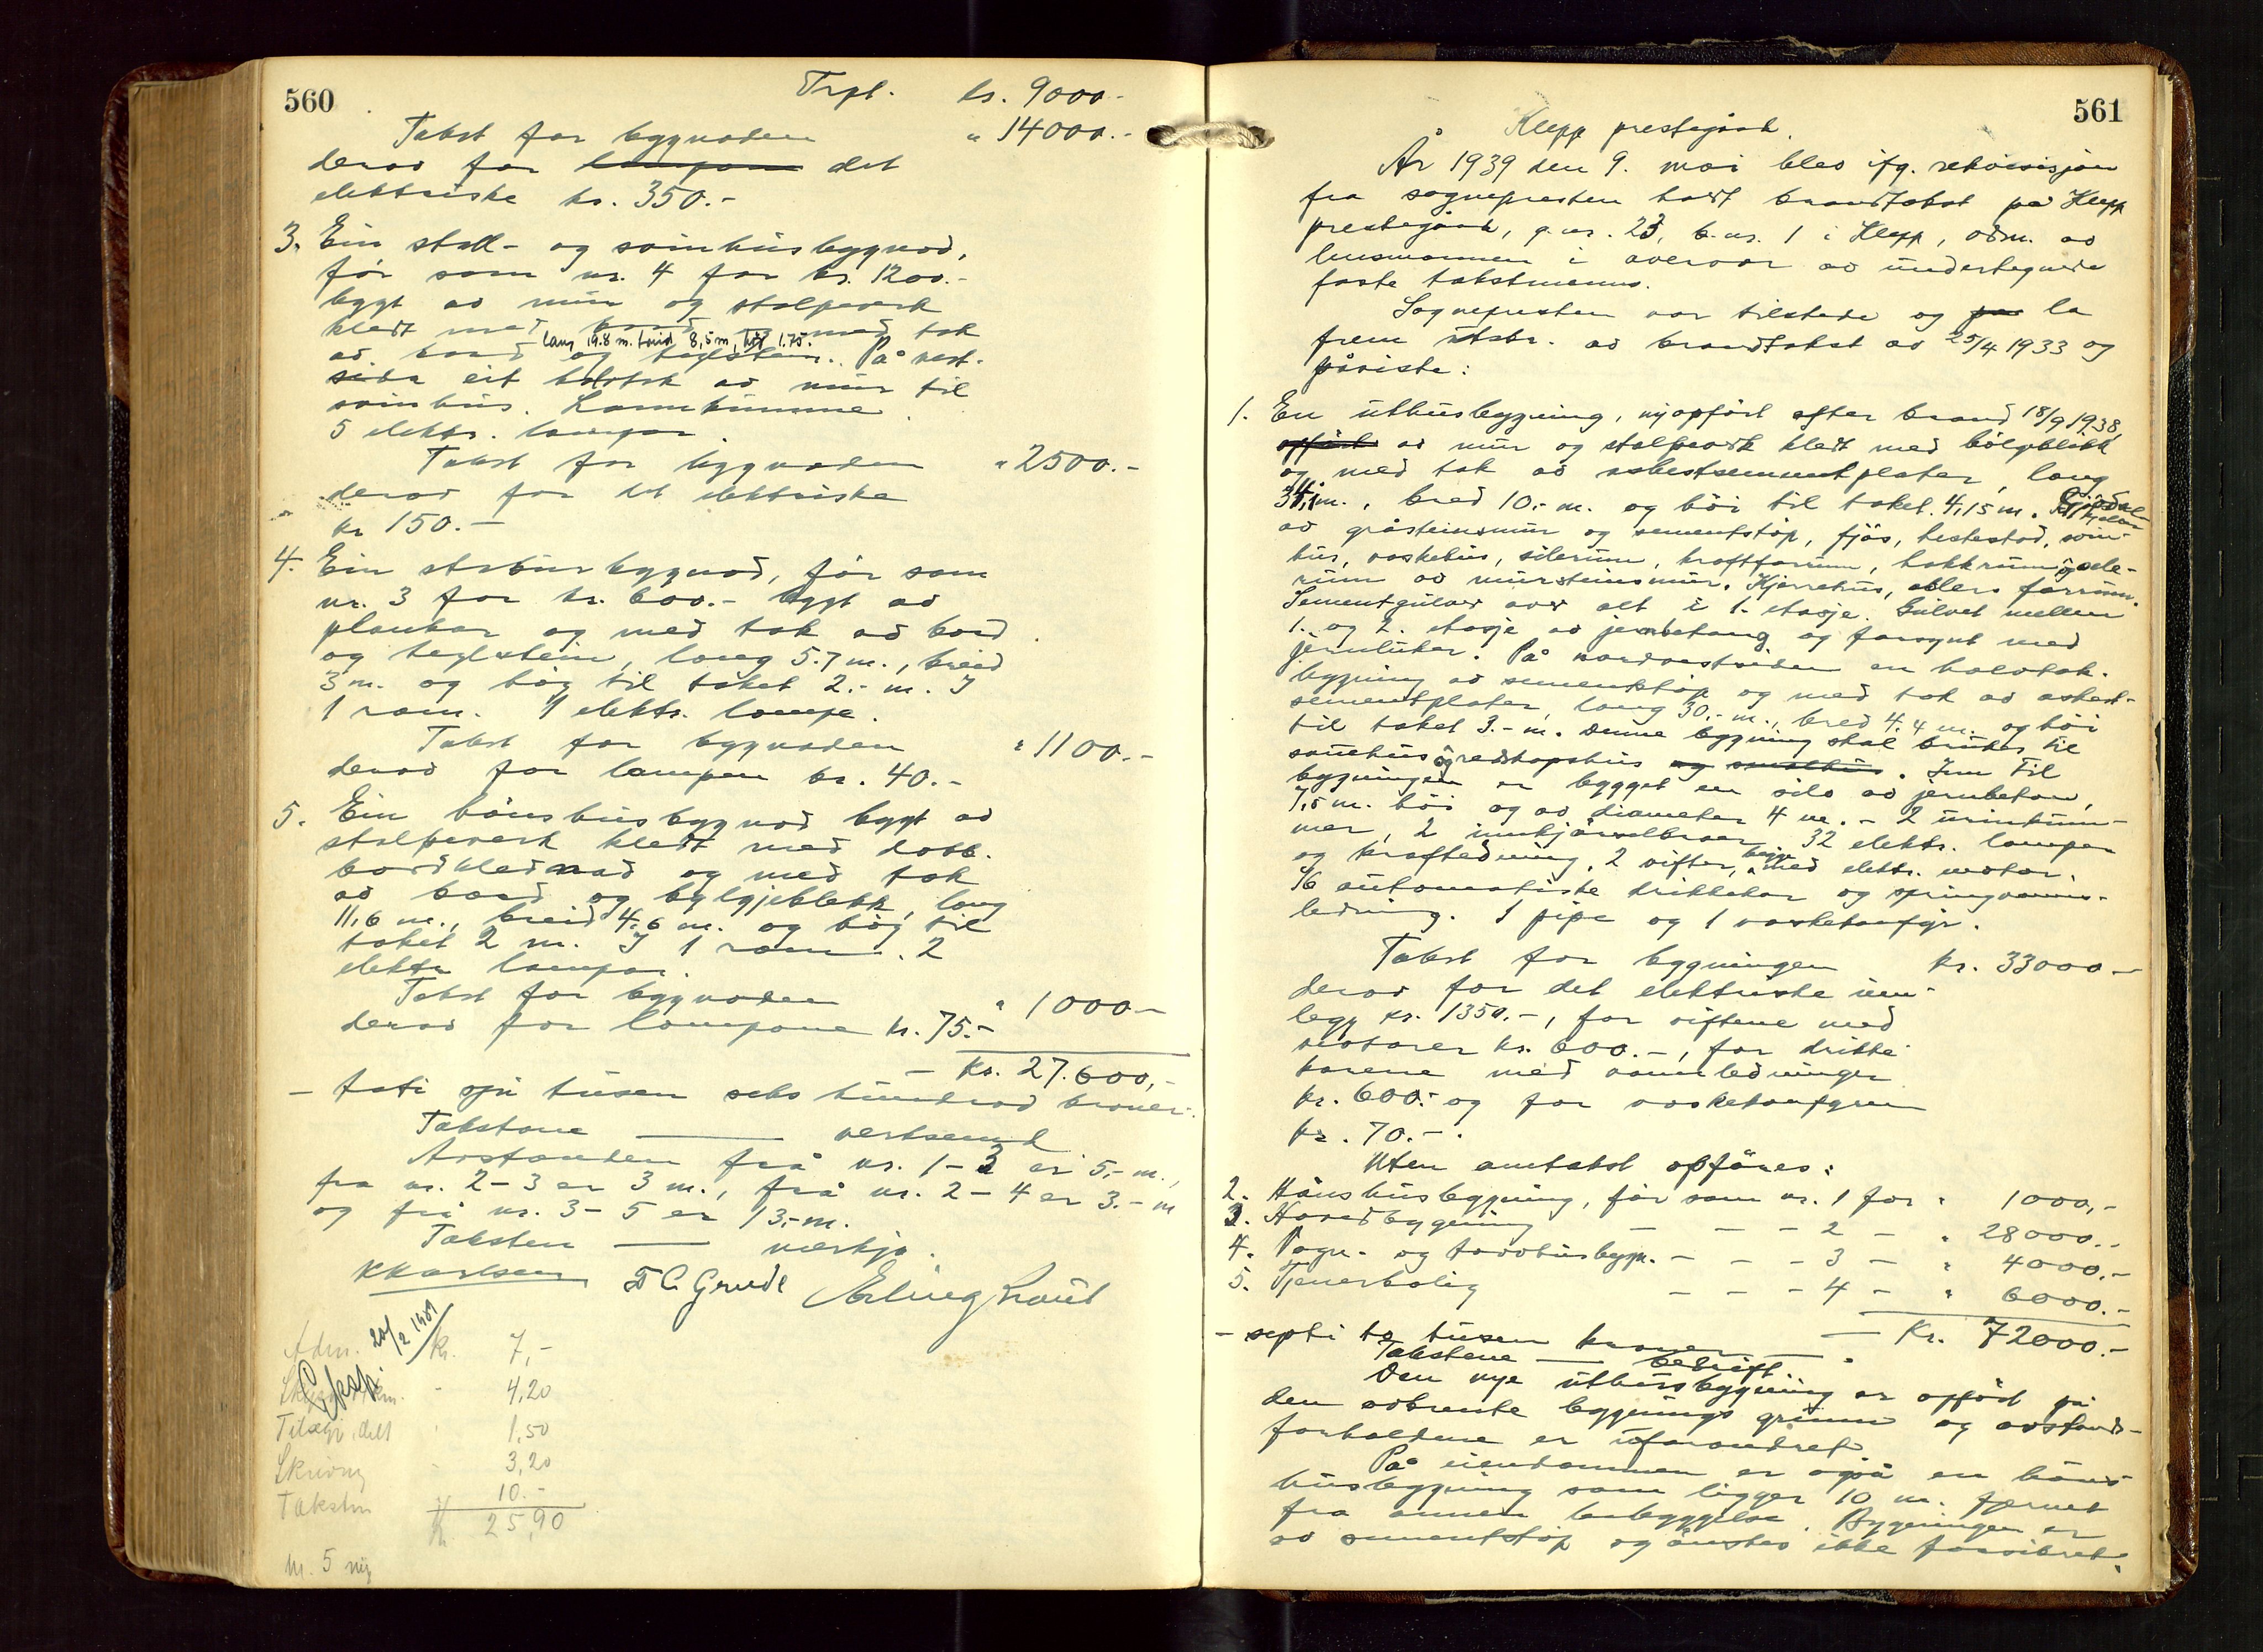 560
Trpt. kr. 9000.-
Takst for bygnaden " 14000.-
derav for lampone det
elektriske kr. 350.-
3. Ein stall- og svinhusbygnad,
før som nr. 4 for kr. 1200.-
bygt av mur og stolpeverk
kledt med bord og med tak
lang 19.8 m. breid 8,5 m, høg 1.75.
av bord og teglstein. På vest-
sida eit halvtak av mur til
svinhus. Lannkumme.
5 elektr. lampor.
Takst for bygnaden " 2500.-
derav for det elektriske
kr 150.-
4. Ein stabursbygnad, før som
nr. 3 for kr. 600.- bygt av
plankar og med tak av bord
og teglstein, lang 5.7 m., breid
3 m. og høg til taket 2.- m. I
1 rom. 1 elektr. lampe.
Takst for bygnaden " 1100.-
derav for lampen kr. 40.-
5. Ein hønshusbygnad bygt av
stolpeverk kledt med dobb.
bordklednad og med tak
av bord og bylgjeblekk, lang
11,6 m., breid 4,6 m. og høg til
taket 2 m. I 1 rom. 2
elektr lampor.
Takst for bygnaden " 1000.-
derav for lampone kr. 75.-
- kr. 27.600,-
- tjue sju tusen seks hundrad kroner.
Takstane — verksemd
Avstanden frå nr. 1-2 er 5,- m.,
fra nr. 2-3 er 3 m., frå nr. 2-4 er 3.- m
og frå nr. 3-5 er 13,- m.
Taksten — merkja.
K Karlsen T C Grude Erling Braut
Adm. kr. 7,-
20/2 1939
Eksp.
4,20
Tillegg, delt 1,50
Skriving 3,20
Takstm 10.-
kr. 25,90
nr. 5 ny
561
Klepp prestegård.
År 1939 den 9. mai blev ifg. rekvisisjon
fra sognepresten holdt brandtakst på Klepp
prestegård, g.nr. 23, b.nr. 1 i Klepp, adm. av
lensmannen i overvær av undertegnede
faste takstmenn.
Sognepresten var tilstede og la
frem utskr. av brandtakst av 25/4 1933 og
påviste:
1. En uthusbygning, nyopført efter brand 18/9 1938,
opført av mur og stolpeverk kledt med bølgeblikk
og med tak av asbestsementplater, lang
34,1 m., bred 10,- m. og høi til taket 4,15 m. Gjødselkjeller
av gråsteinsmur og sementstøp, fjøs, hestestad, svin-
hus, vaskehus, silorum, kraftforrum, hakkrum og sele-
rum av mursteinsmur. Kjerrehus, ellers forrum.
Sementgulver over alt i 1. etasje. Gulvet mellem
1. og 2. etasje av jernbetong og forsynt med
jernluker. På nordvestsiden en halvtak-
bygning av sementstøp og med tak av asbest-
sementplater, lang 30,- m., bred 4,4 m. og høi
til taket 3.- m. Denne bygning skal brukes til
sauehus og redskapshus og smalhus. Inn til
bygningen er bygget en silo av jernbeton,
7,5 m. høi og av diameter 4 m. - 2 urinkum-
mer, 2 innkjørselbroer, 32 elektr. lamper
og kraftledning. 2 vifter, begge med elektr. motor.
16 automatiske drikkekar og springvanns-
ledning. 1 pipe og 1 vaskekomfyr.
Takst for bygningen kr. 33000.-
derav for det elektriske inn-
legg kr. 1350.-, for viftene med
motorer kr. 600.-, for drikke-
karene med vannledninger
kr. 600.- og for vaskekomfyren
kr. 70.-.
Uten omtakst opføres:
2. Hønshusbygning, før som nr. 1 for " 1000,-
3. Hovedbygning - - - 2 - " 28000.-
4. Vogn- og torvhusbygn. - - - 3 - " 4000.-
5. Tjenerbolig - - - 4 - " 6000.-
- sytti to tusen kroner — Kr. 72000.-
Takstene — bedrift.
Den nye uthusbygning er opført på
den avbrente bygnings grunn og avstands-
forholdene er uforandret.
På eiendommen er også en høns-
husbygning som ligger 10 m. fjernet
fra annen bebyggelse. Bygningen er
av sementstøp og ønskes ikke forsikret.